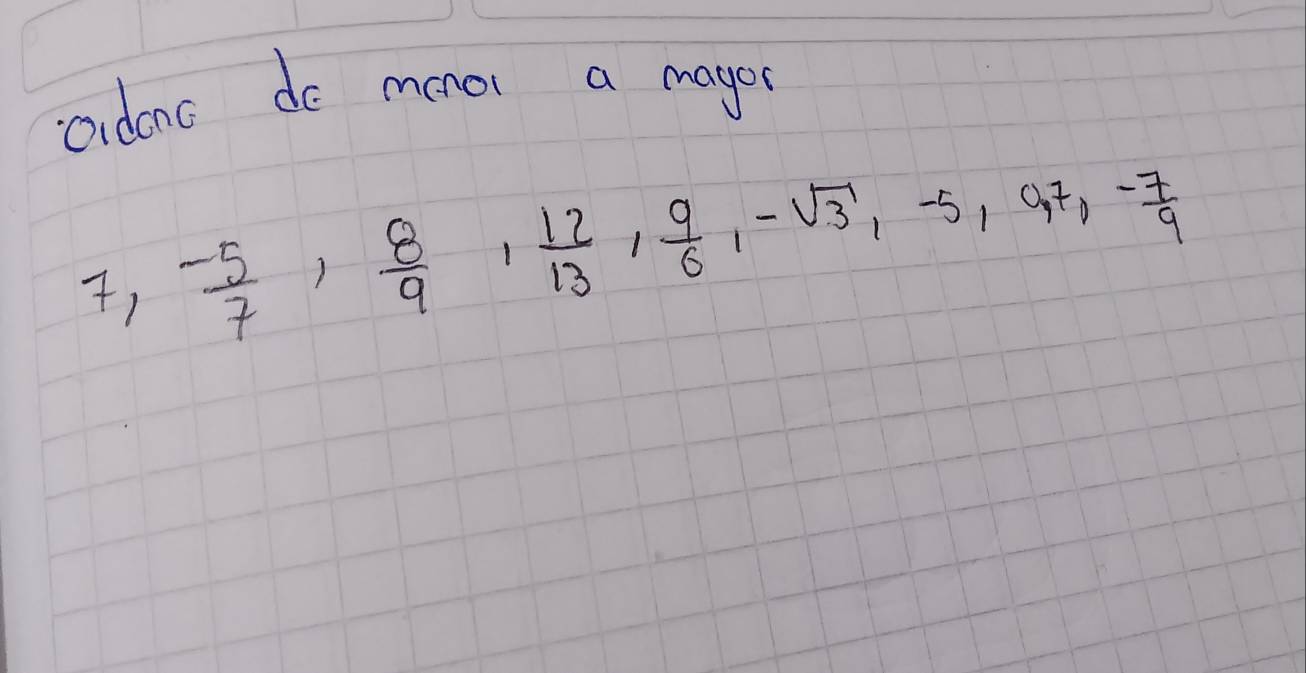 ordene de menor a mayor
7, -5/7, 8/9, 12/13, 9/6, -√3, -5, 0,7, -7/9